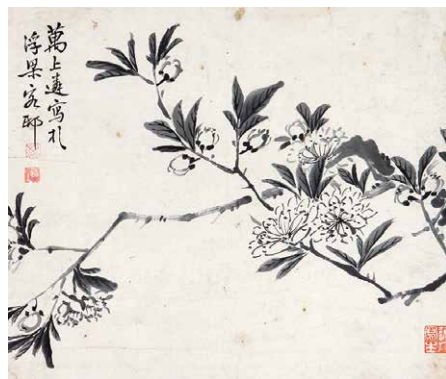 萬上遴寫於
浮梁客邸